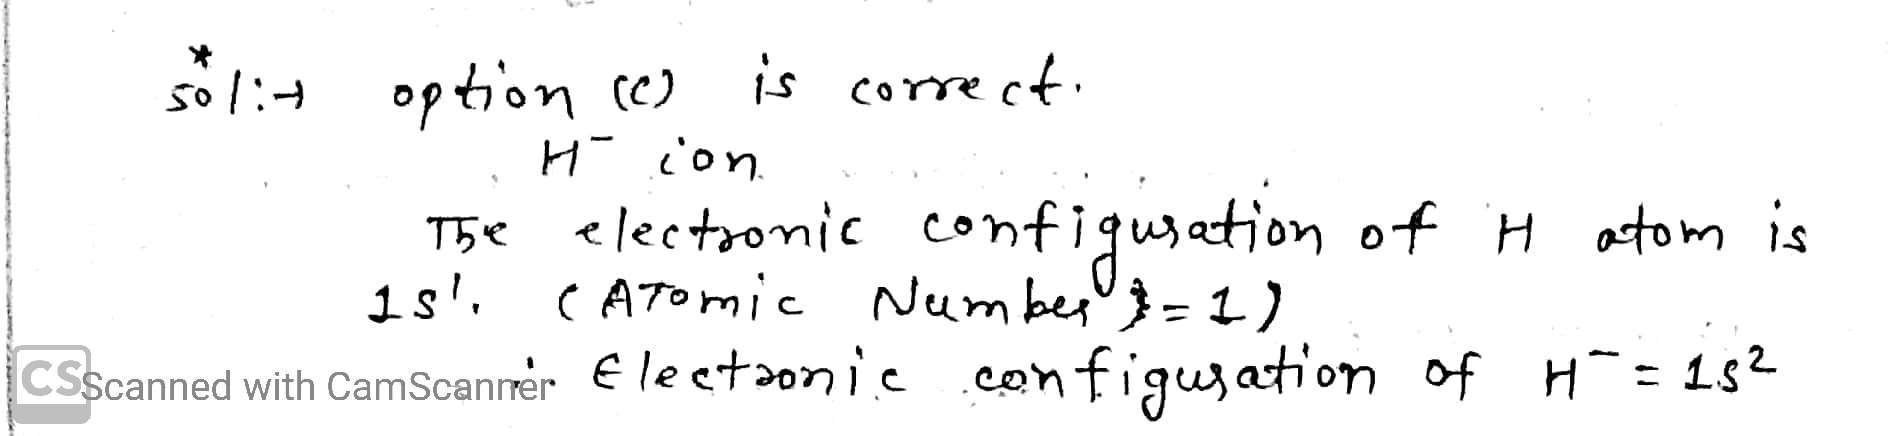 *
sol:→ option (c) is correct.
H⁻ ion
The electronic configuration of H atom is
1s¹. (ATomic Number = 1)
∴ Electronic configuration of H⁻ = 1s²
CS Scanned with CamScanner